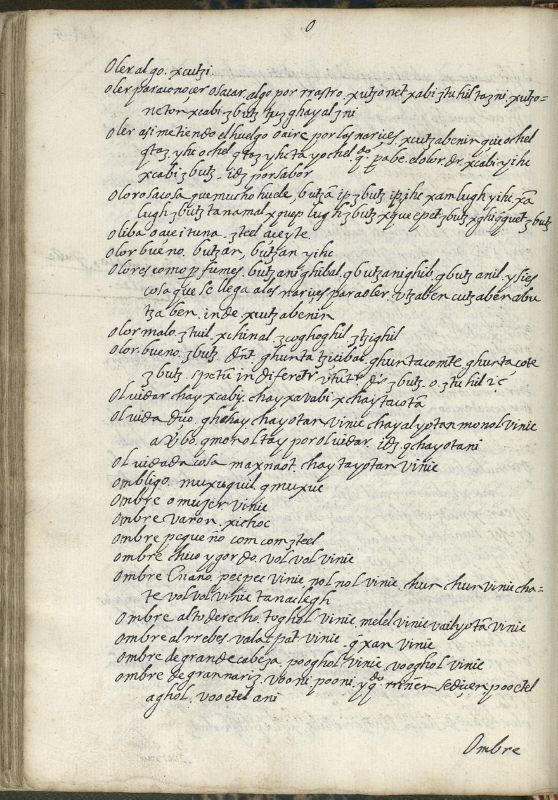 O
Oler algo. xcutzi.
oler para conoçer o sacar algo por rrastro. xutzonet xabi ztuhil tazni. xutzo=
neton, xcabi zbutz tuz ghayalzni
Oler asi metiendo el huelgo o aire por las narizes. xcutzabenin, quiochel
qtaz, yhi ochel qtaz yhcta yochel dōq pabe. el olor dr xcabi yihc
xcabi zbutz. idz por sabor
Olorosa cosa que mucho huele, butzā ip zbutz ipihc xamlugh yihc xā
lugh zbutz tanamal xquep lugh zbutz xque epetz zbutz xghioquetz zbutz
oliba o aceituna. zteel aceyte.
Olor bueno. butzan, butzan yihc
Olores como pfumes. butzanighibal. q butzanighib q butzanil. y si es
cosa que se llega a las narizes para oler. utzaben cutzaben abu
tza ben. inde xcutzabenin
Olor malo. ztuil. xchinal zcoghoghil ztzighil
Olor bueno. zbutz. dnt ghunta tzicibac ghuntacomte, ghuntacote
zbutz. spetiū indiferētr ututr dō zbutz. o. ztuhil ic
Olvidar chayxcaby. chayxavabi xchaytacotā
Olvida dizo, ghohay chayotan vinic chayalyotan monol vinic
a Vbo, q monoltay por olvidar. idz q chayotani
Olvidada cosa maxnaot. chaytayotan vinic
Ombligo. muxuquil. q muxuc
Ombre o mujer vinic
Ombre varon. xichoc
ombre pequeño com com zteel
ombre chico y gordo. vol vol vinic
Ombre Enano. pecpec vinic pol nol vinic, chur chur vinic cha=
te vol vol vinic tanaclegh
Ombre alto derecho. toghol vinic melel vinic vail yotā vinic
ombre al rrebes. vala zpat vinic. q xan vinic
ombre de grande cabeza. pooghol vinic vooghol vinic
ombre de gran nariz. vooni pooni. y q dō nmer se diçen, pooctel
aghol. vooctel ani
Ombre